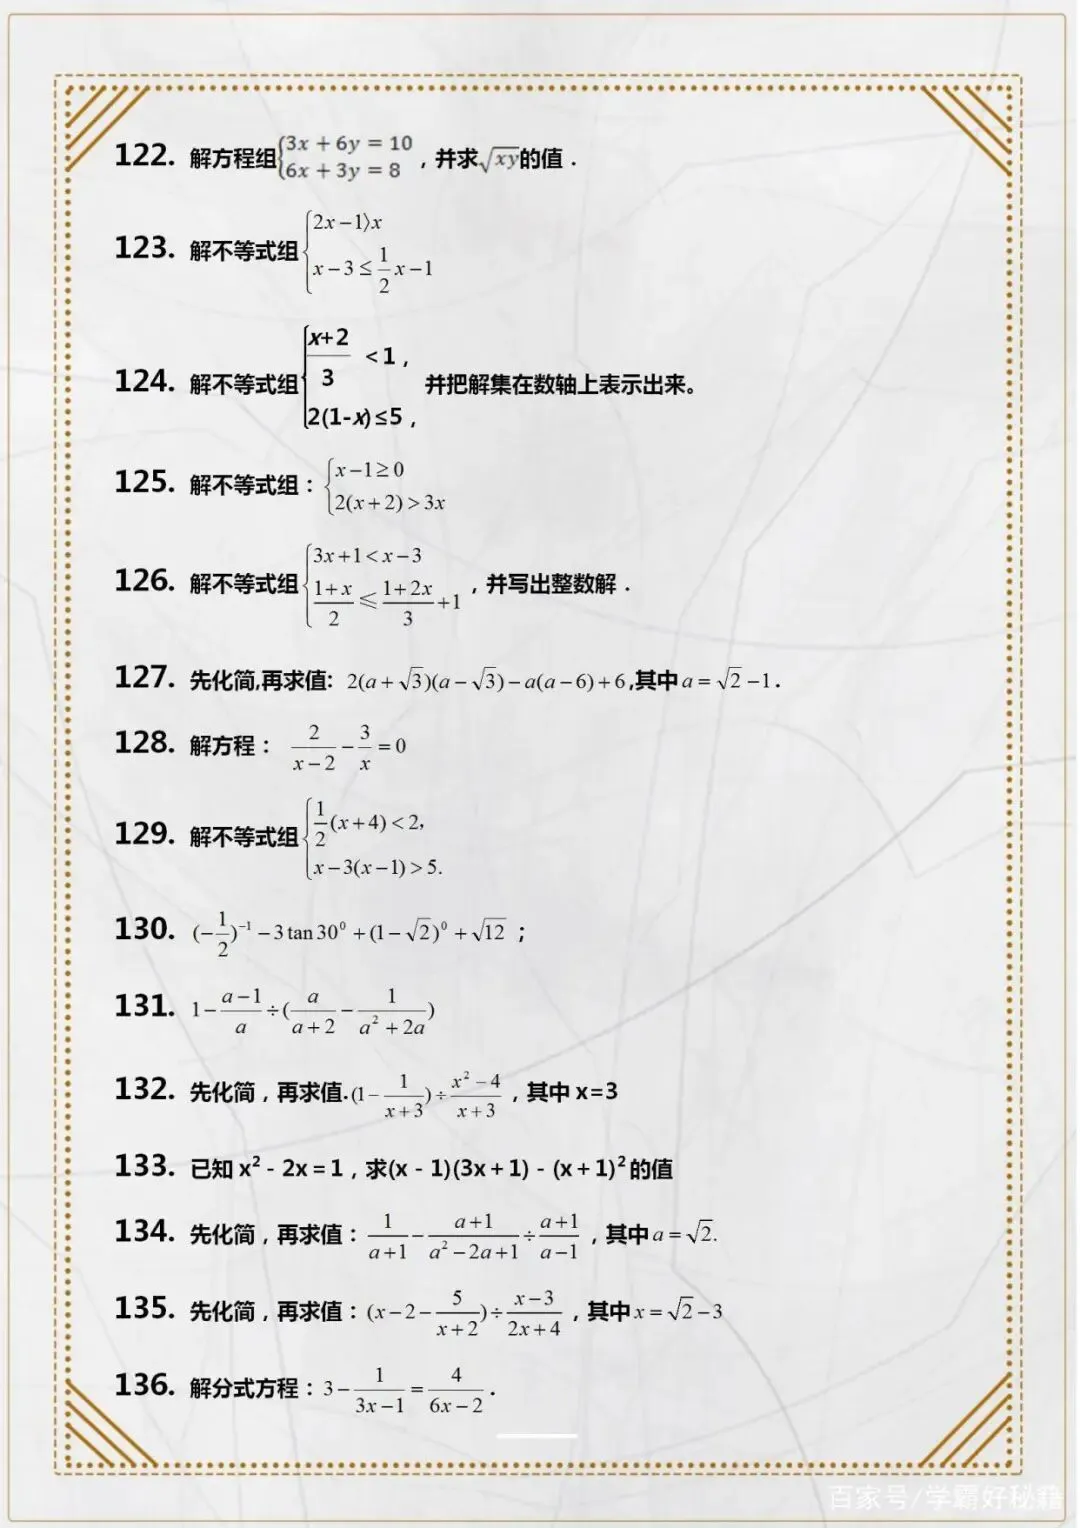 122. 解方程组{3x + 6y = 10
6x + 3y = 8 ，并求√xy的值．
123. 解不等式组{2x−1⟩x
x−3≤1/2x−1
124. 解不等式组{x+2/3 <1，
2(1-x)≤5， 并把解集在数轴上表示出来。
125. 解不等式组：{x−1≥0
2(x+2)>3x
126. 解不等式组{3x+1<x−3
1+x/2≤1+2x/3+1 ，并写出整数解．
127. 先化简,再求值: 2(a+√3)(a−√3)−a(a−6)+6,其中a=√2−1.
128. 解方程： 2/x−2−3/x=0
129. 解不等式组{1/2(x+4)<2,
x−3(x−1)>5.
130. (−1/2)⁻¹−3tan30⁰+(1−√2)⁰+√12；
131. 1−a−1/a÷(a/a+2−1/a²+2a)
132. 先化简，再求值.(1−1/x+3)÷x²−4/x+3，其中 x=3
133. 已知 x² - 2x = 1，求(x - 1)(3x + 1) - (x + 1)² 的值
134. 先化简，再求值：1/a+1−a+1/a²−2a+1÷a+1/a−1，其中a=√2.
135. 先化简，再求值：(x−2−5/x+2)÷x−3/2x+4，其中x=√2−3
136. 解分式方程：3−1/3x−1=4/6x−2．
百家号/学霸好秘籍